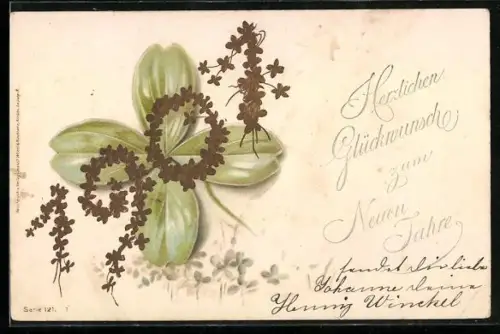 Herzlichen
Glückwunsch
zum
Neuen
Jahre
sendet Dir liebe
Johanne deine
Henny Winckel
1901
Serie 121.